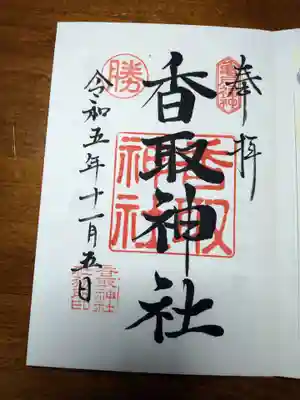 奉拝
香取神社
勝
香取
神社
令和五年十一月五日